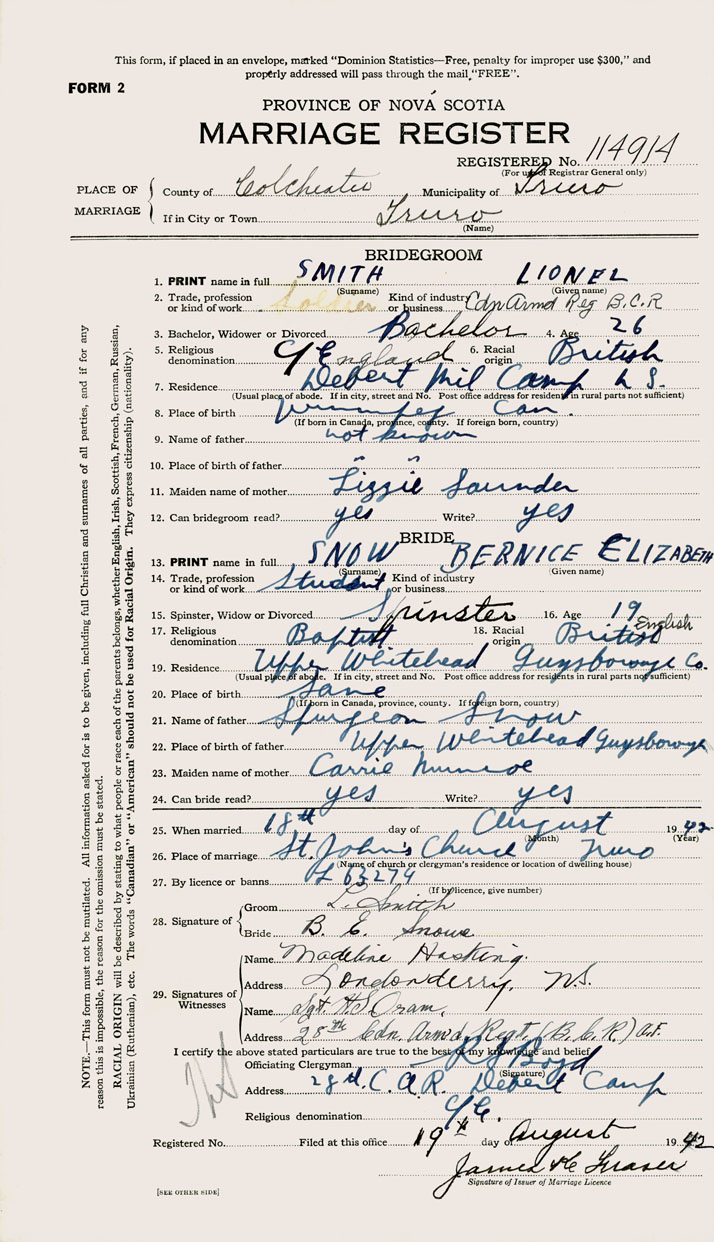 This form, if placed in an envelope, marked "Dominion Statistics—Free, penalty for improper use $300," and
properly addressed will pass through the mail "FREE".
FORM 2
PROVINCE OF NOVA SCOTIA
MARRIAGE REGISTER
REGISTERED No. 114914
(For use of Registrar General only)
PLACE OF MARRIAGE
County of Colchester Municipality of Truro
If in City or Town Truro
(Name)
BRIDEGROOM
1. PRINT name in full SMITH LIONEL
(Surname) (Given name)
2. Trade, profession or kind of work Soldier Kind of industry or business Cdn Armd Reg B.C.R
3. Bachelor, Widower or Divorced Bachelor 4. Age 26
5. Religious denomination C of England 6. Racial origin British
7. Residence Debert Mil Camp N S.
(Usual place of abode. If in city, street and No. Post office address for residents in rural parts not sufficient)
8. Place of birth Winnipeg Can.
(If born in Canada, province, county. If foreign born, country)
9. Name of father not known
10. Place of birth of father " "
11. Maiden name of mother Lizzie Saunder
12. Can bridegroom read? yes Write? yes
BRIDE
13. PRINT name in full SNOW BERNICE ELIZABETH
(Surname) (Given name)
14. Trade, profession or kind of work Student Kind of industry or business
15. Spinster, Widow or Divorced Spinster 16. Age 19
17. Religious denomination Baptist 18. Racial origin British English
19. Residence Upper Whitehead Guysborough Co.
(Usual place of abode. If in city, street and No. Post office address for residents in rural parts not sufficient)
20. Place of birth Same
(If born in Canada, province, county. If foreign born, country)
21. Name of father Spurgeon Snow
22. Place of birth of father Upper Whitehead Guysboro
23. Maiden name of mother Carrie Munroe
24. Can bride read? yes Write? yes
25. When married 18th day of August 1942
(Month) (Year)
26. Place of marriage St. John's Church Truro
(Name of church or clergyman's residence or location of dwelling house)
27. By licence or banns L 63274
(If by licence, give number)
28. Signature of
Groom L. Smith
Bride B. E. Snow
29. Signatures of Witnesses
Name Madeline Hasking.
Address Londonderry, N.S.
Name Sgt. H.S. Oram,
Address 28th Cdn. Armd. Regt. (B.C.R) A.F.
I certify the above stated particulars are true to the best of my knowledge and belief
Officiating Clergyman Boyd
(Signature)
Address 28th. C.A.R. Debert Camp
Religious denomination C of E.
Registered No. Filed at this office 19th day of August 1942
James H Fraser
Signature of Issuer of Marriage Licence
[SEE OTHER SIDE]
NOTE.—This form must not be mutilated. All information asked for is to be given, including full Christian and surnames of all parties, and if for any
reason this is impossible, the reason for the omission must be stated.
RACIAL ORIGIN will be described by stating to what people or race each of the parents belongs, whether English, Irish, Scottish, French, German, Russian,
Ukrainian (Ruthenian), etc. The words "Canadian" or "American" should not be used for Racial Origin. They express citizenship (nationality).